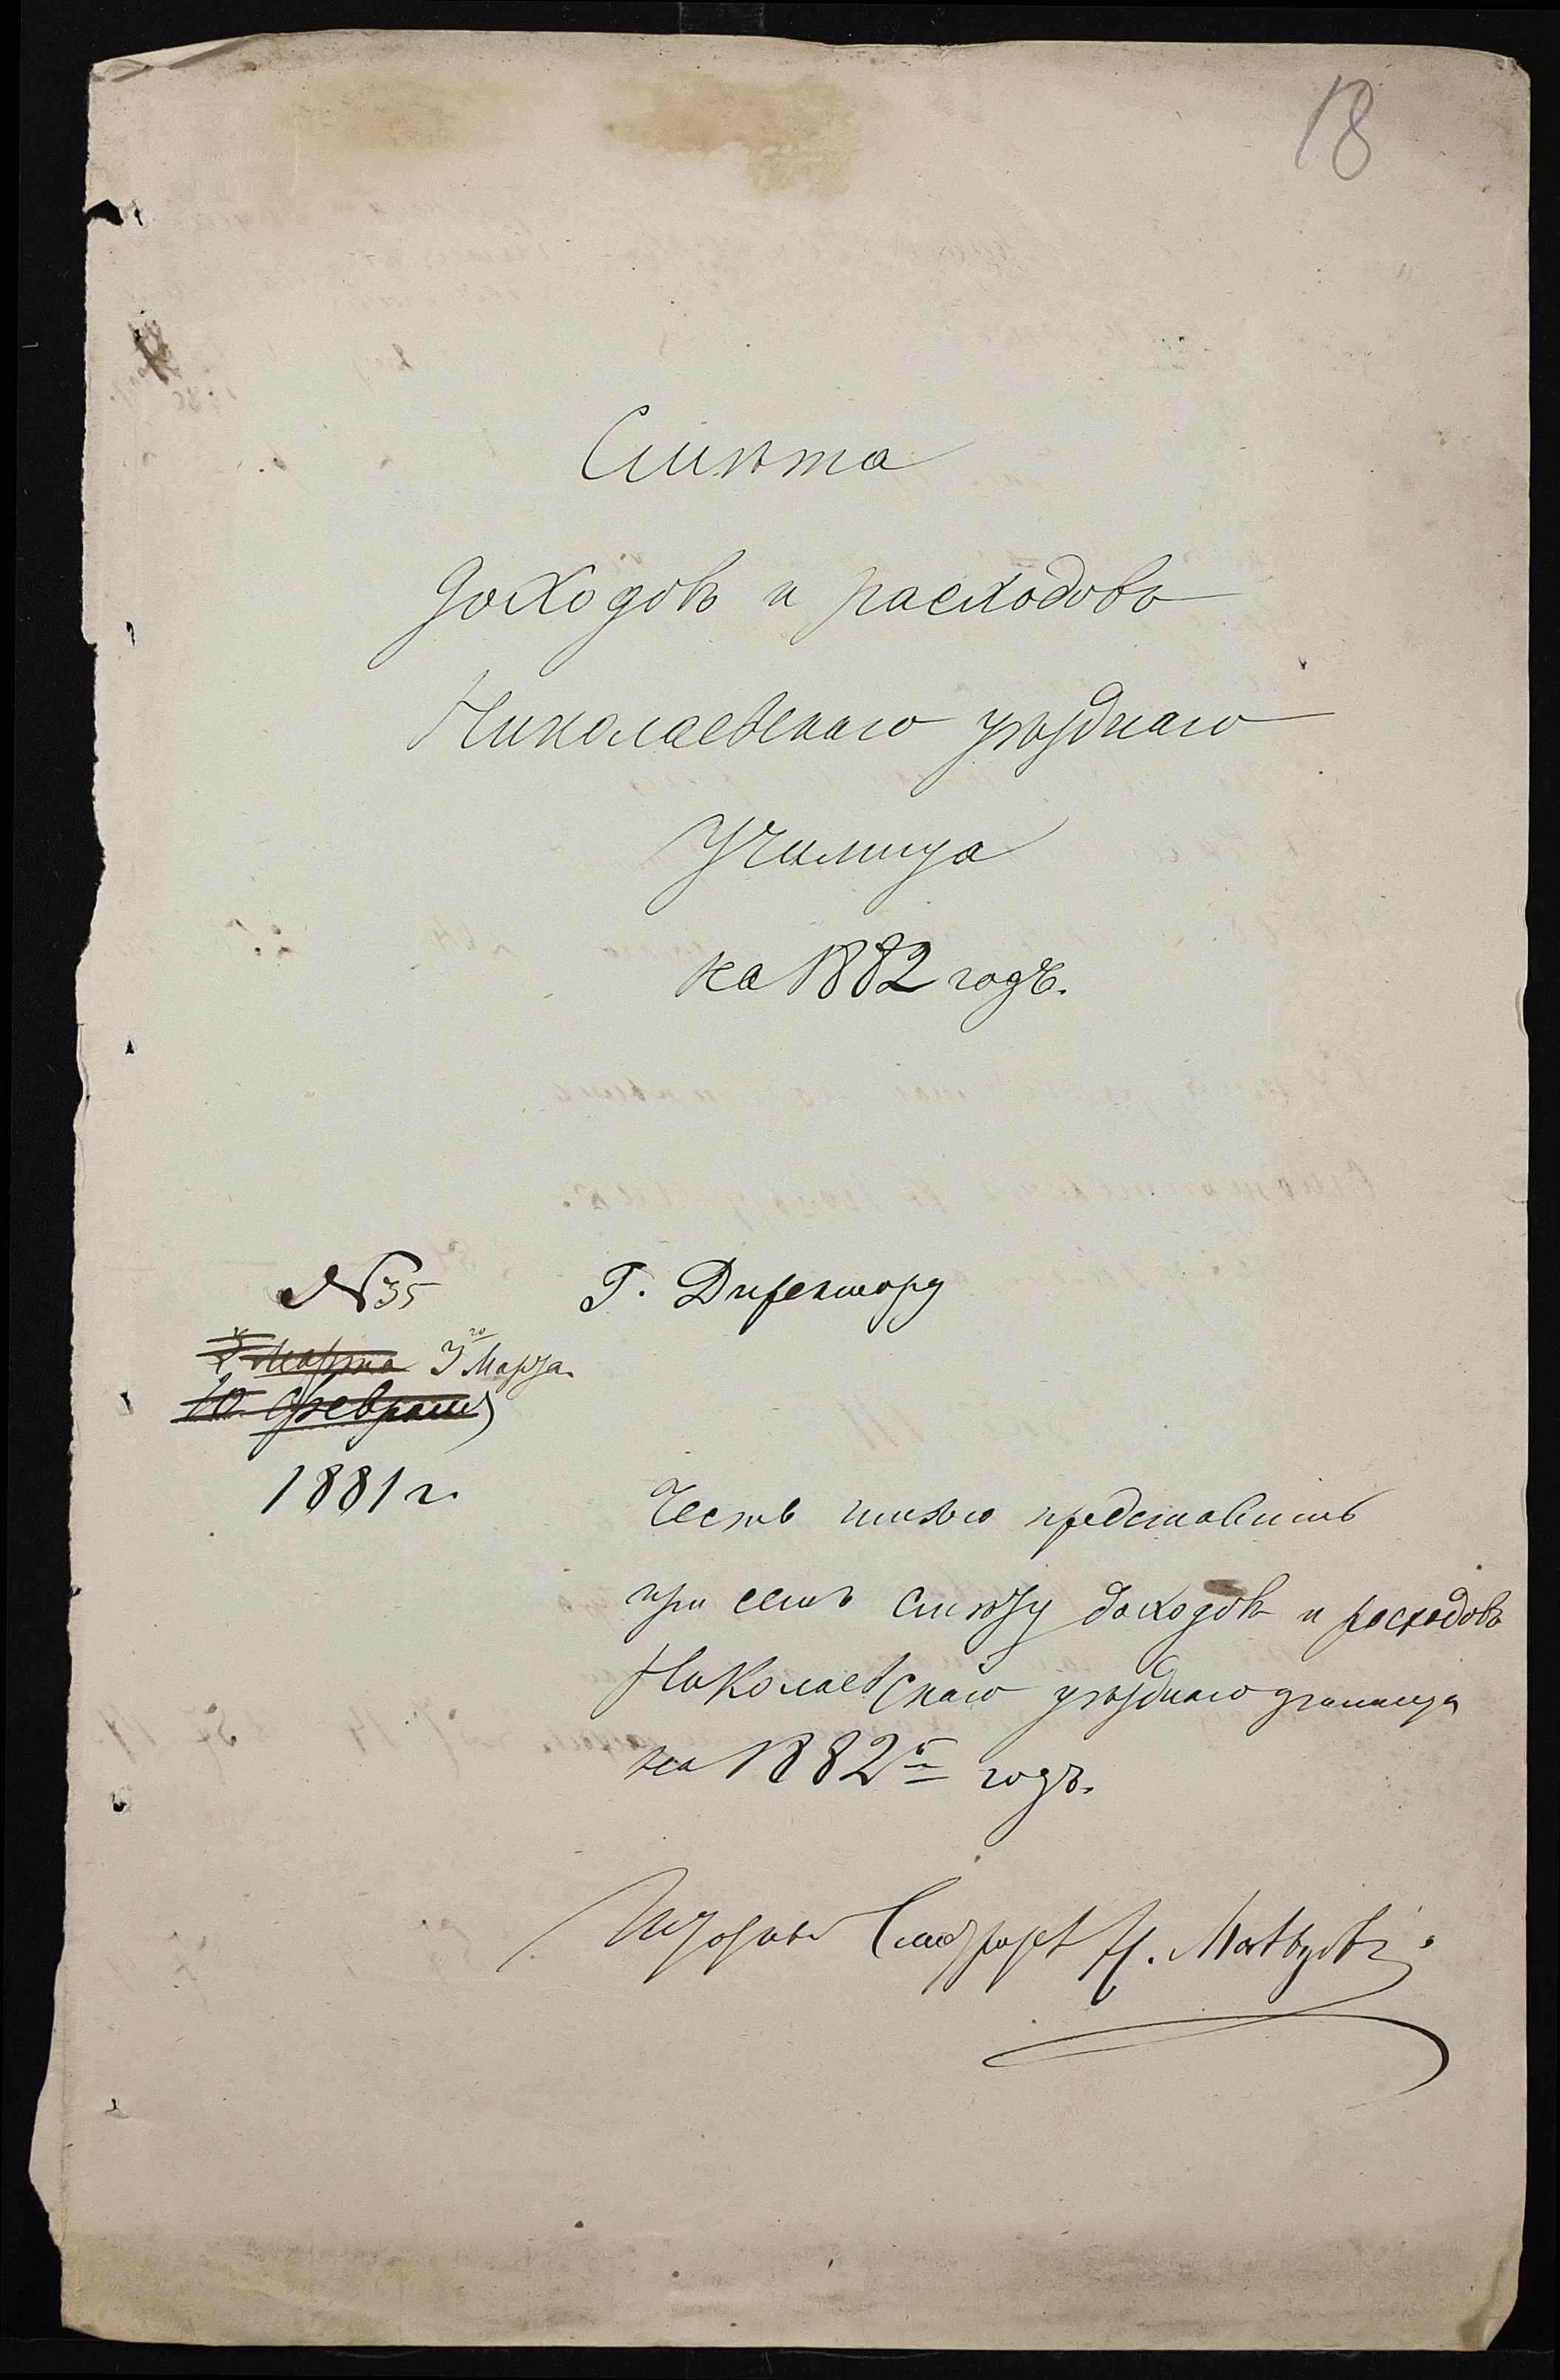 18
Смѣта
доходовъ и расходовъ
Николаевскаго уѣзднаго
училища
на 1882 годъ.
№35
Г. Директору
Марта 3го Марта
10 февраля
1881 г.
Честь имѣю представить
при семъ смѣту доходовъ и расходовъ
Николаевскаго уѣзднаго училища
на 1882й годъ.
Штатный Смотритель Н. Матвѣевъ